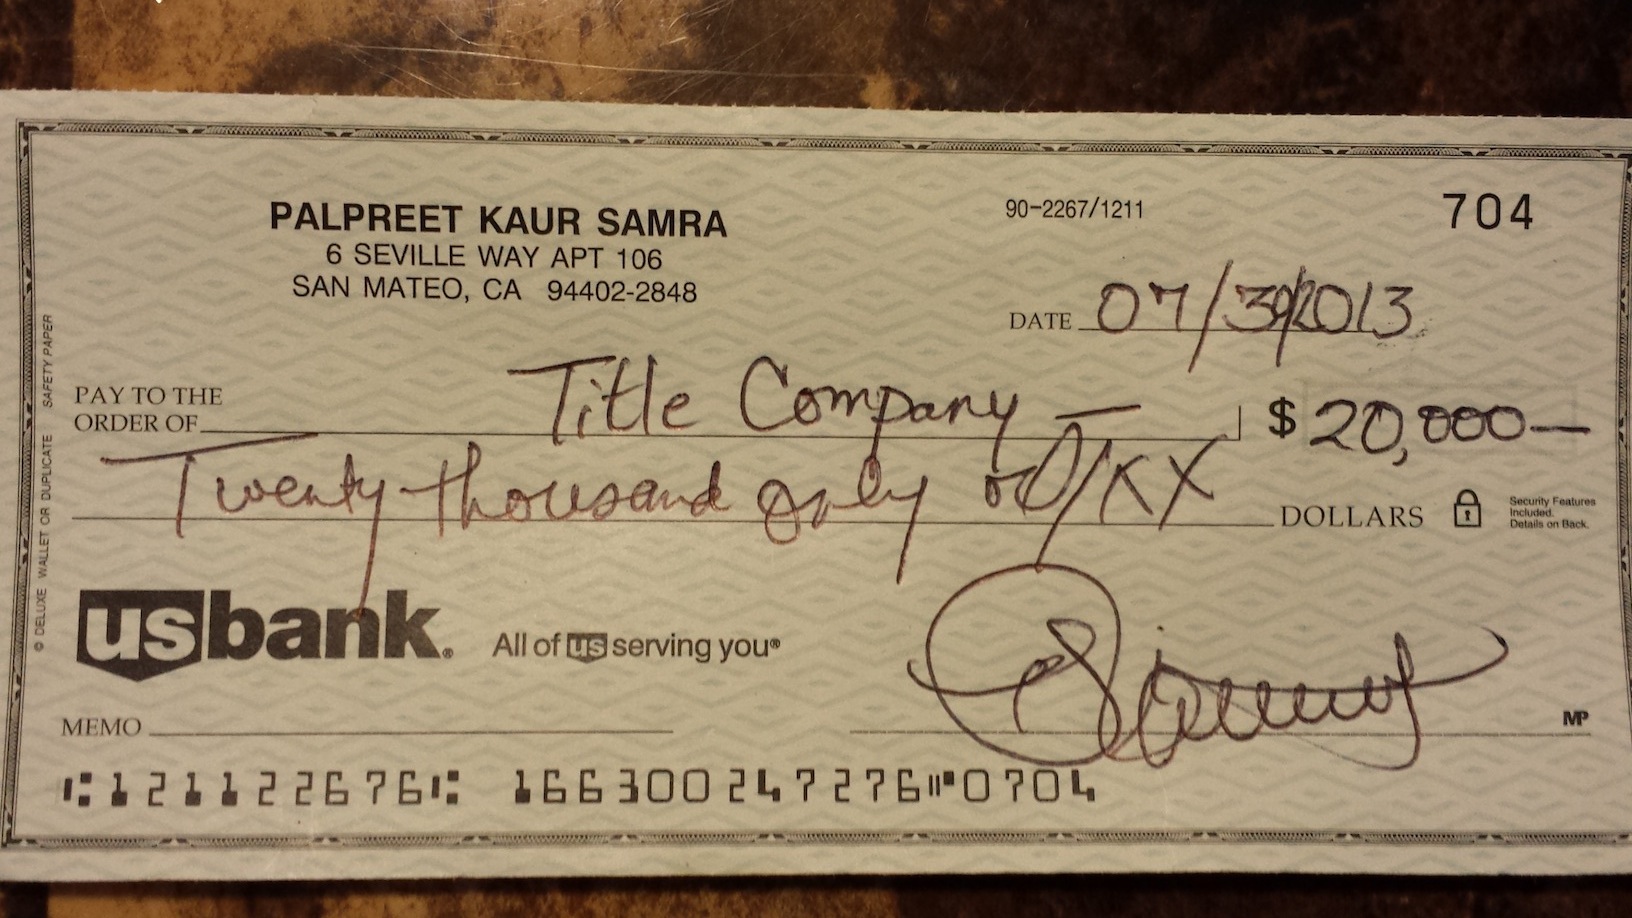 PALPREET KAUR SAMRA
6 SEVILLE WAY APT 106
SAN MATEO, CA 94402-2848
90-2267/1211
704
DATE 07/30/2013
PAY TO THE ORDER OF Title Company — $ 20,000—
Twenty thousand only 00/XX DOLLARS
Security Features
Included.
Details on Back.
© DELUXE WALLET OR DUPLICATE SAFETY PAPER
usbank. All of us serving you®
MEMO
MP
⑆121122676⑆ 166300247276⑈0704